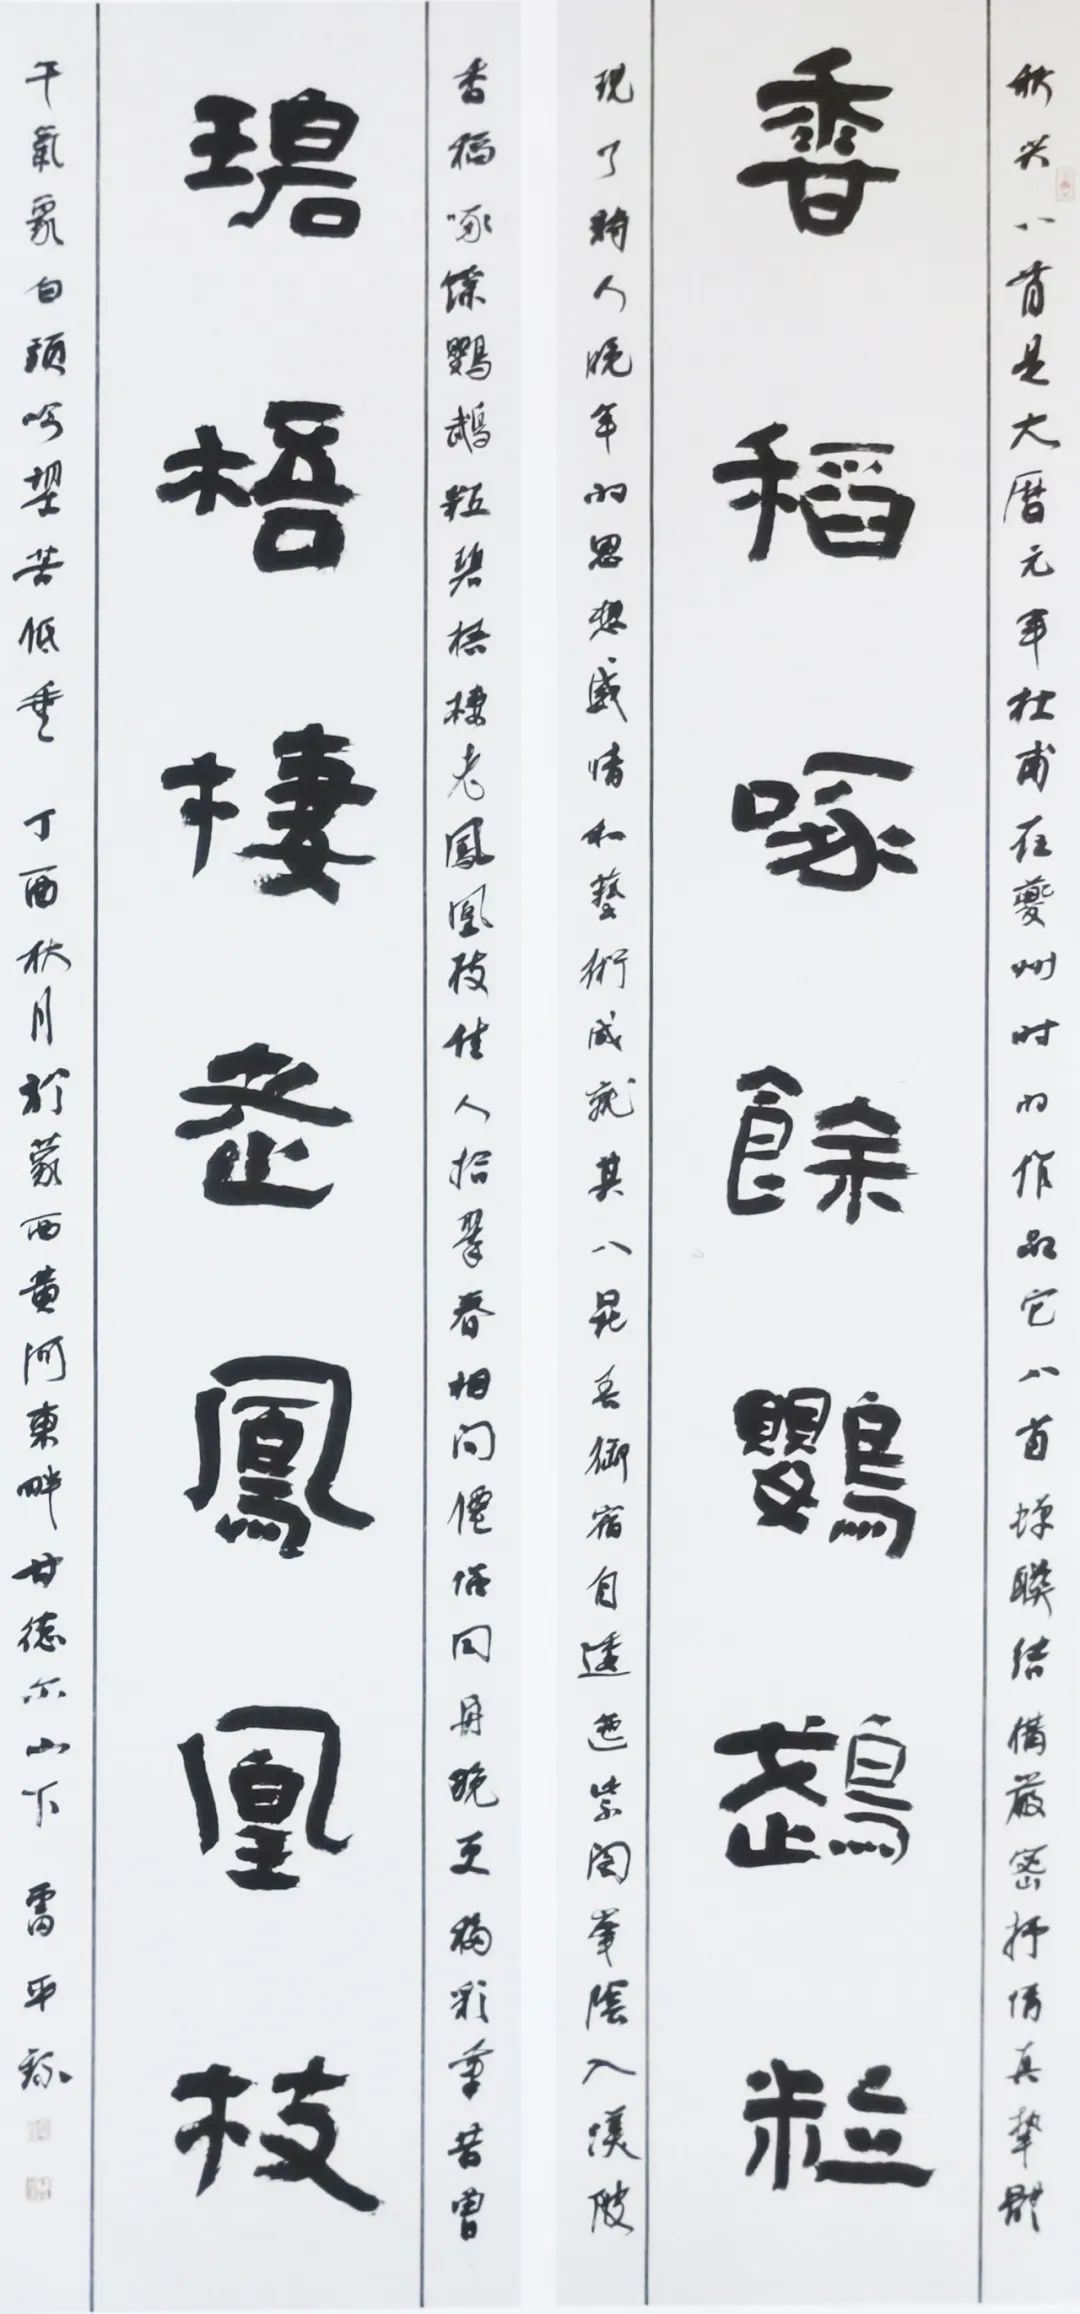 秋兴八首是大曆元年杜甫在夔州时的作品它八首蝉聯结構嚴密抒情真挚體
香稻啄餘鸚鵡粒
现了詩人晚年的思想感情和藝術成就其八昆吾御宿自逶迤紫閣峯陰入渼陂
香稻啄餘鸚鵡粒碧梧棲老鳳凰枝佳人拾翠春相问僊侣同舟晚更移彩筆昔曾
碧梧棲老鳳凰枝
干氣象白頭吟望苦低垂 丁酉秋月於蒙西黄河東畔甘德尔山下 雷平